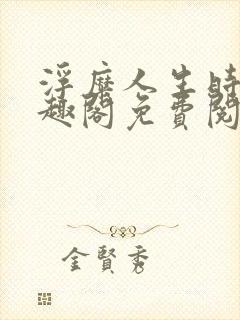 浮靡人生時
趣閣免費閱
金賢秀